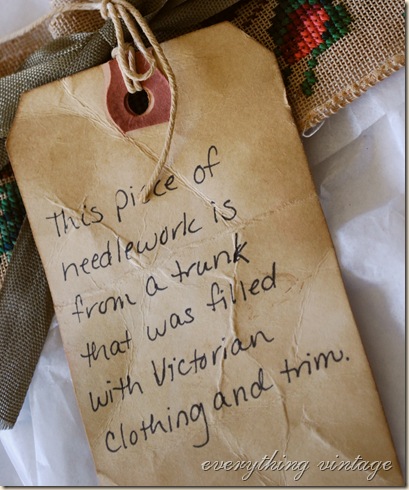 this piece of
needlework is
from a trunk
that was filled
with Victorian
clothing and trim.
everything vintage